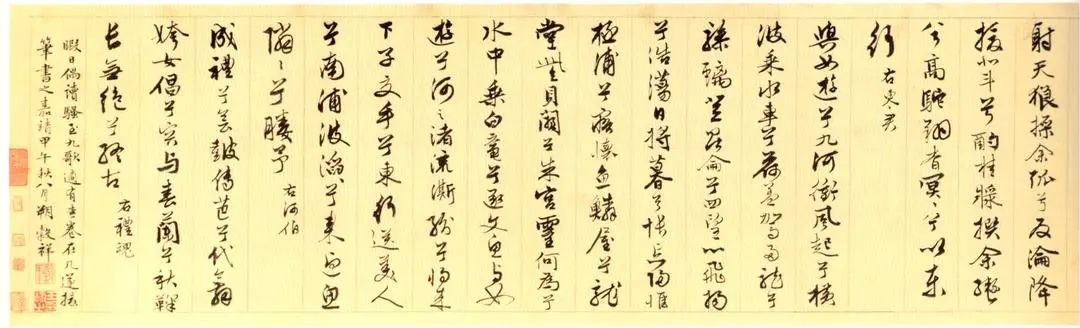 射天狼操余弧兮反淪降
援北斗兮酌桂漿撰余轡
兮高駝翔杳冥冥兮以東
行 右東君
與女遊兮九河衝風起兮橫
波乘水車兮荷蓋駕兩龍兮
驂螭登崑崙兮四望心飛揚
兮浩蕩日將暮兮悵忘歸惟
極浦兮寤懷魚鱗屋兮龍
堂紫貝闕兮朱宮靈何為兮
水中乘白黿兮逐文魚與女
遊兮河之渚流澌紛兮將來
下子交手兮東行送美人
兮南浦波滔滔兮來迎魚
隣隣兮媵予 右河伯
成禮兮會鼓傳芭兮代舞
姱女倡兮容與春蘭兮秋鞠
長無絕兮終古 右禮魂
暇日偶讀騷至九歌適有素卷在几遂援
筆書之嘉靖甲午秋八月朔穀祥